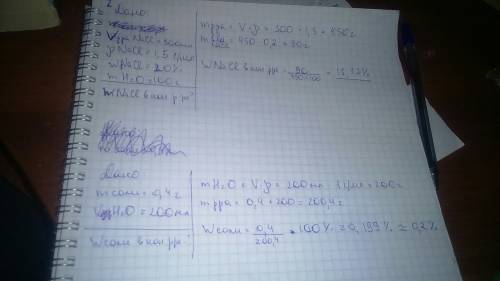 2 Дано:
V рра NaCl = 300мл
ρ NaCl = 1,5 г/мл
w NaCl = 20%
m H2O = 100 г
W NaCl в кон рр - ?
m рра = V · ρ = 300 · 1,5 = 450 г
m NaCl = 450 · 0,2 = 90 г
W NaCl в кон рр = 90 =
Дано
m соли = 0,4 г
V H2O = 200 мл
W соли в кон рр - ?
m H2O = V · ρ = 200 мл · 1 г/мл = 200 г
m рра = 0,4 + 200 = 200,4 г
W соли = 0,4/200,4 · 100% = 0,199% ≈ 0,2%